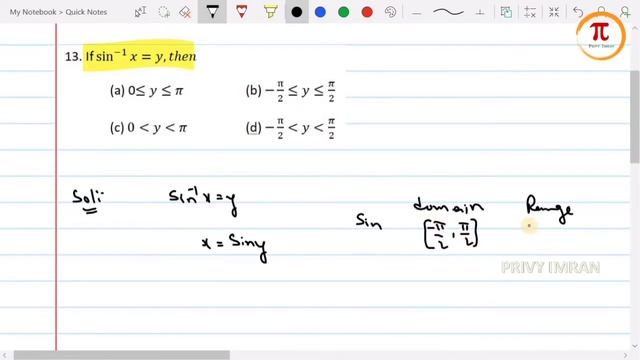 My Notebook > Quick Notes
π
PRIVY IMRAN
13. If sin⁻¹ x = y, then
(a) 0≤ y ≤ π
(b) −π/2 ≤ y ≤ π/2
(c) 0 < y < π
(d) −π/2 < y < π/2
Sol:
sin⁻¹ x = y
domain
Range
x = Siny
Sin
[−π/2, π/2]
PRIVY IMRAN